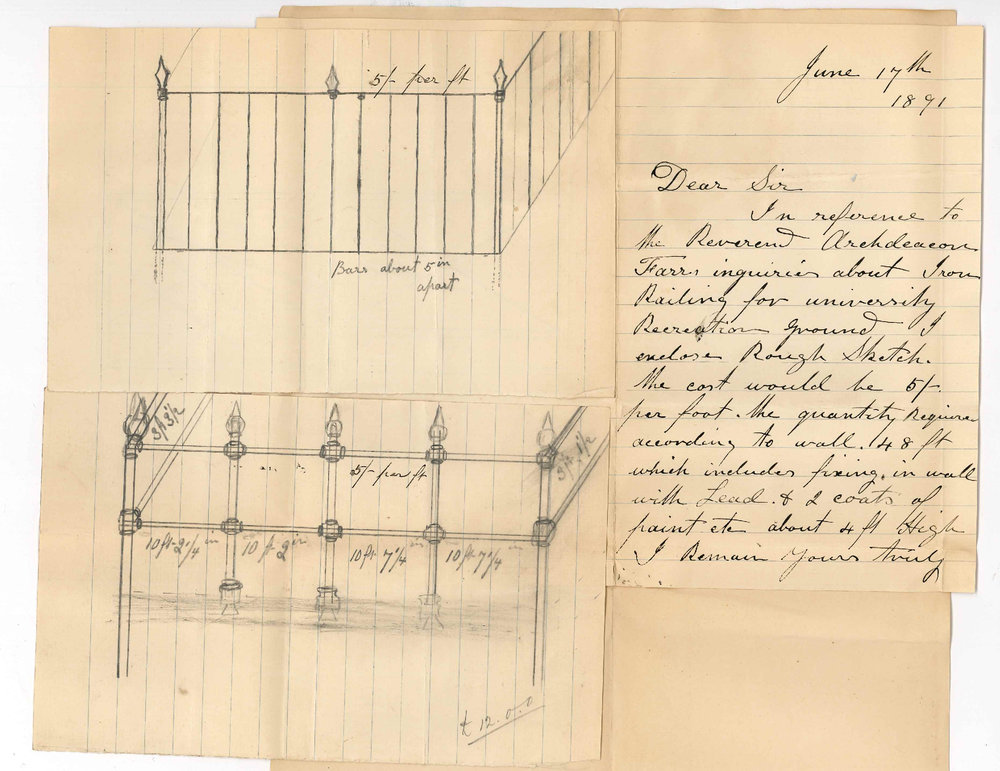 5/- per ft
Bars about 5 in
apart
3ft 3 1/2
5/- per ft
3ft 1 1/2
10 ft 2 1/4 in
10 ft 2 in
10 ft 7 1/4 in
10 ft 7 1/4 in
£ 12.0.0
June 17th
1891
Dear Sir
In reference to
the Reverend Archdeacon
Farrs inquiries about Iron
Railing for university
Recreation Ground I
enclose Rough Sketch.
the cost would be 5/-
per foot. the quantity Require
according to wall. 48 ft
which includes fixing. in wall
with Lead. & 2 coats of
paint etc about 4 ft High
I Remain Yours truly